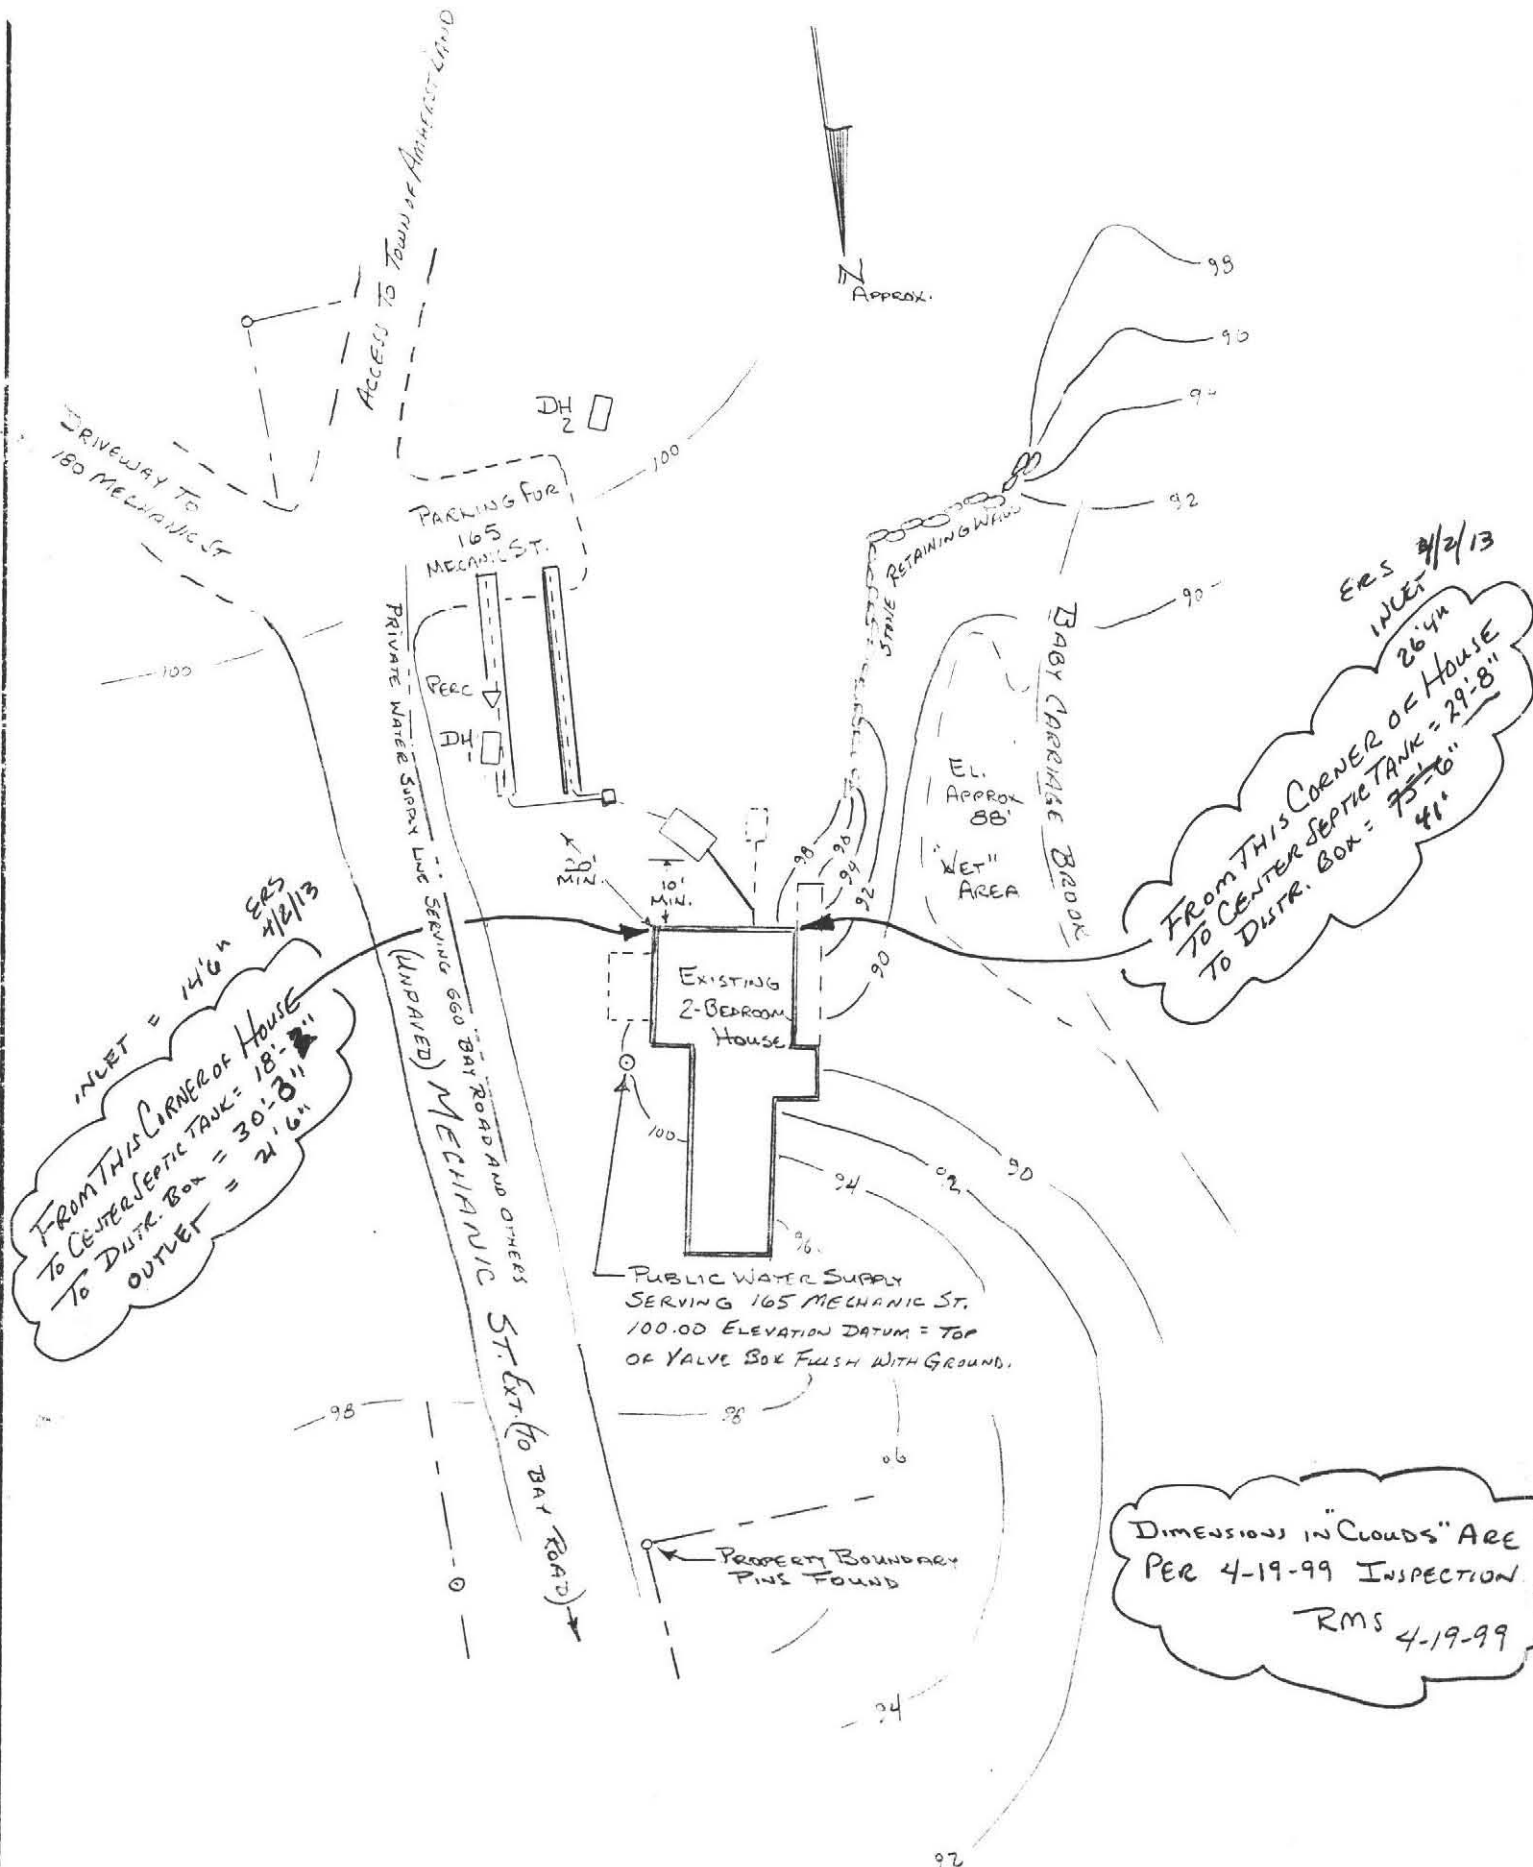 ACCESS TO TOWN OF AMHERST LAND
APPROX.
98
96
94
92
90
DH
2
100
DRIVEWAY TO
180 MECHANIC ST
PARKING FOR
165
MECANIC ST.
STONE RETAINING WALL
BABY CARRIAGE BROOK
100
PERC
DH
1
PRIVATE WATER SUPPLY LINE SERVING 660 BAY ROAD AND OTHERS
(UNPAVED) MECHANIC ST. EXT. (TO BAY ROAD)
EL.
APPROX
88'
"WET"
AREA
MIN.
10'
MIN.
98
96
94
92
90
ERS 4/2/13
INLET
26'4"
FROM THIS CORNER OF HOUSE
TO CENTER SEPTIC TANK = 29'-8"
TO DISTR. BOX = 75'-6"
41'
ERS
4/2/13
INLET = 14'6"
FROM THIS CORNER OF HOUSE
TO CENTER SEPTIC TANK = 18'-
TO DISTR. BOX = 30'-3"
OUTLET = 21'6"
EXISTING
2-BEDROOM
HOUSE
100
90
92
94
96
PUBLIC WATER SUPPLY
SERVING 165 MECHANIC ST.
100.00 ELEVATION DATUM = TOP
OF VALVE BOX FLUSH WITH GROUND.
98
98
96
PROPERTY BOUNDARY
PINS FOUND
DIMENSIONS IN "CLOUDS" ARE
PER 4-19-99 INSPECTION
RMS 4-19-99
94
92